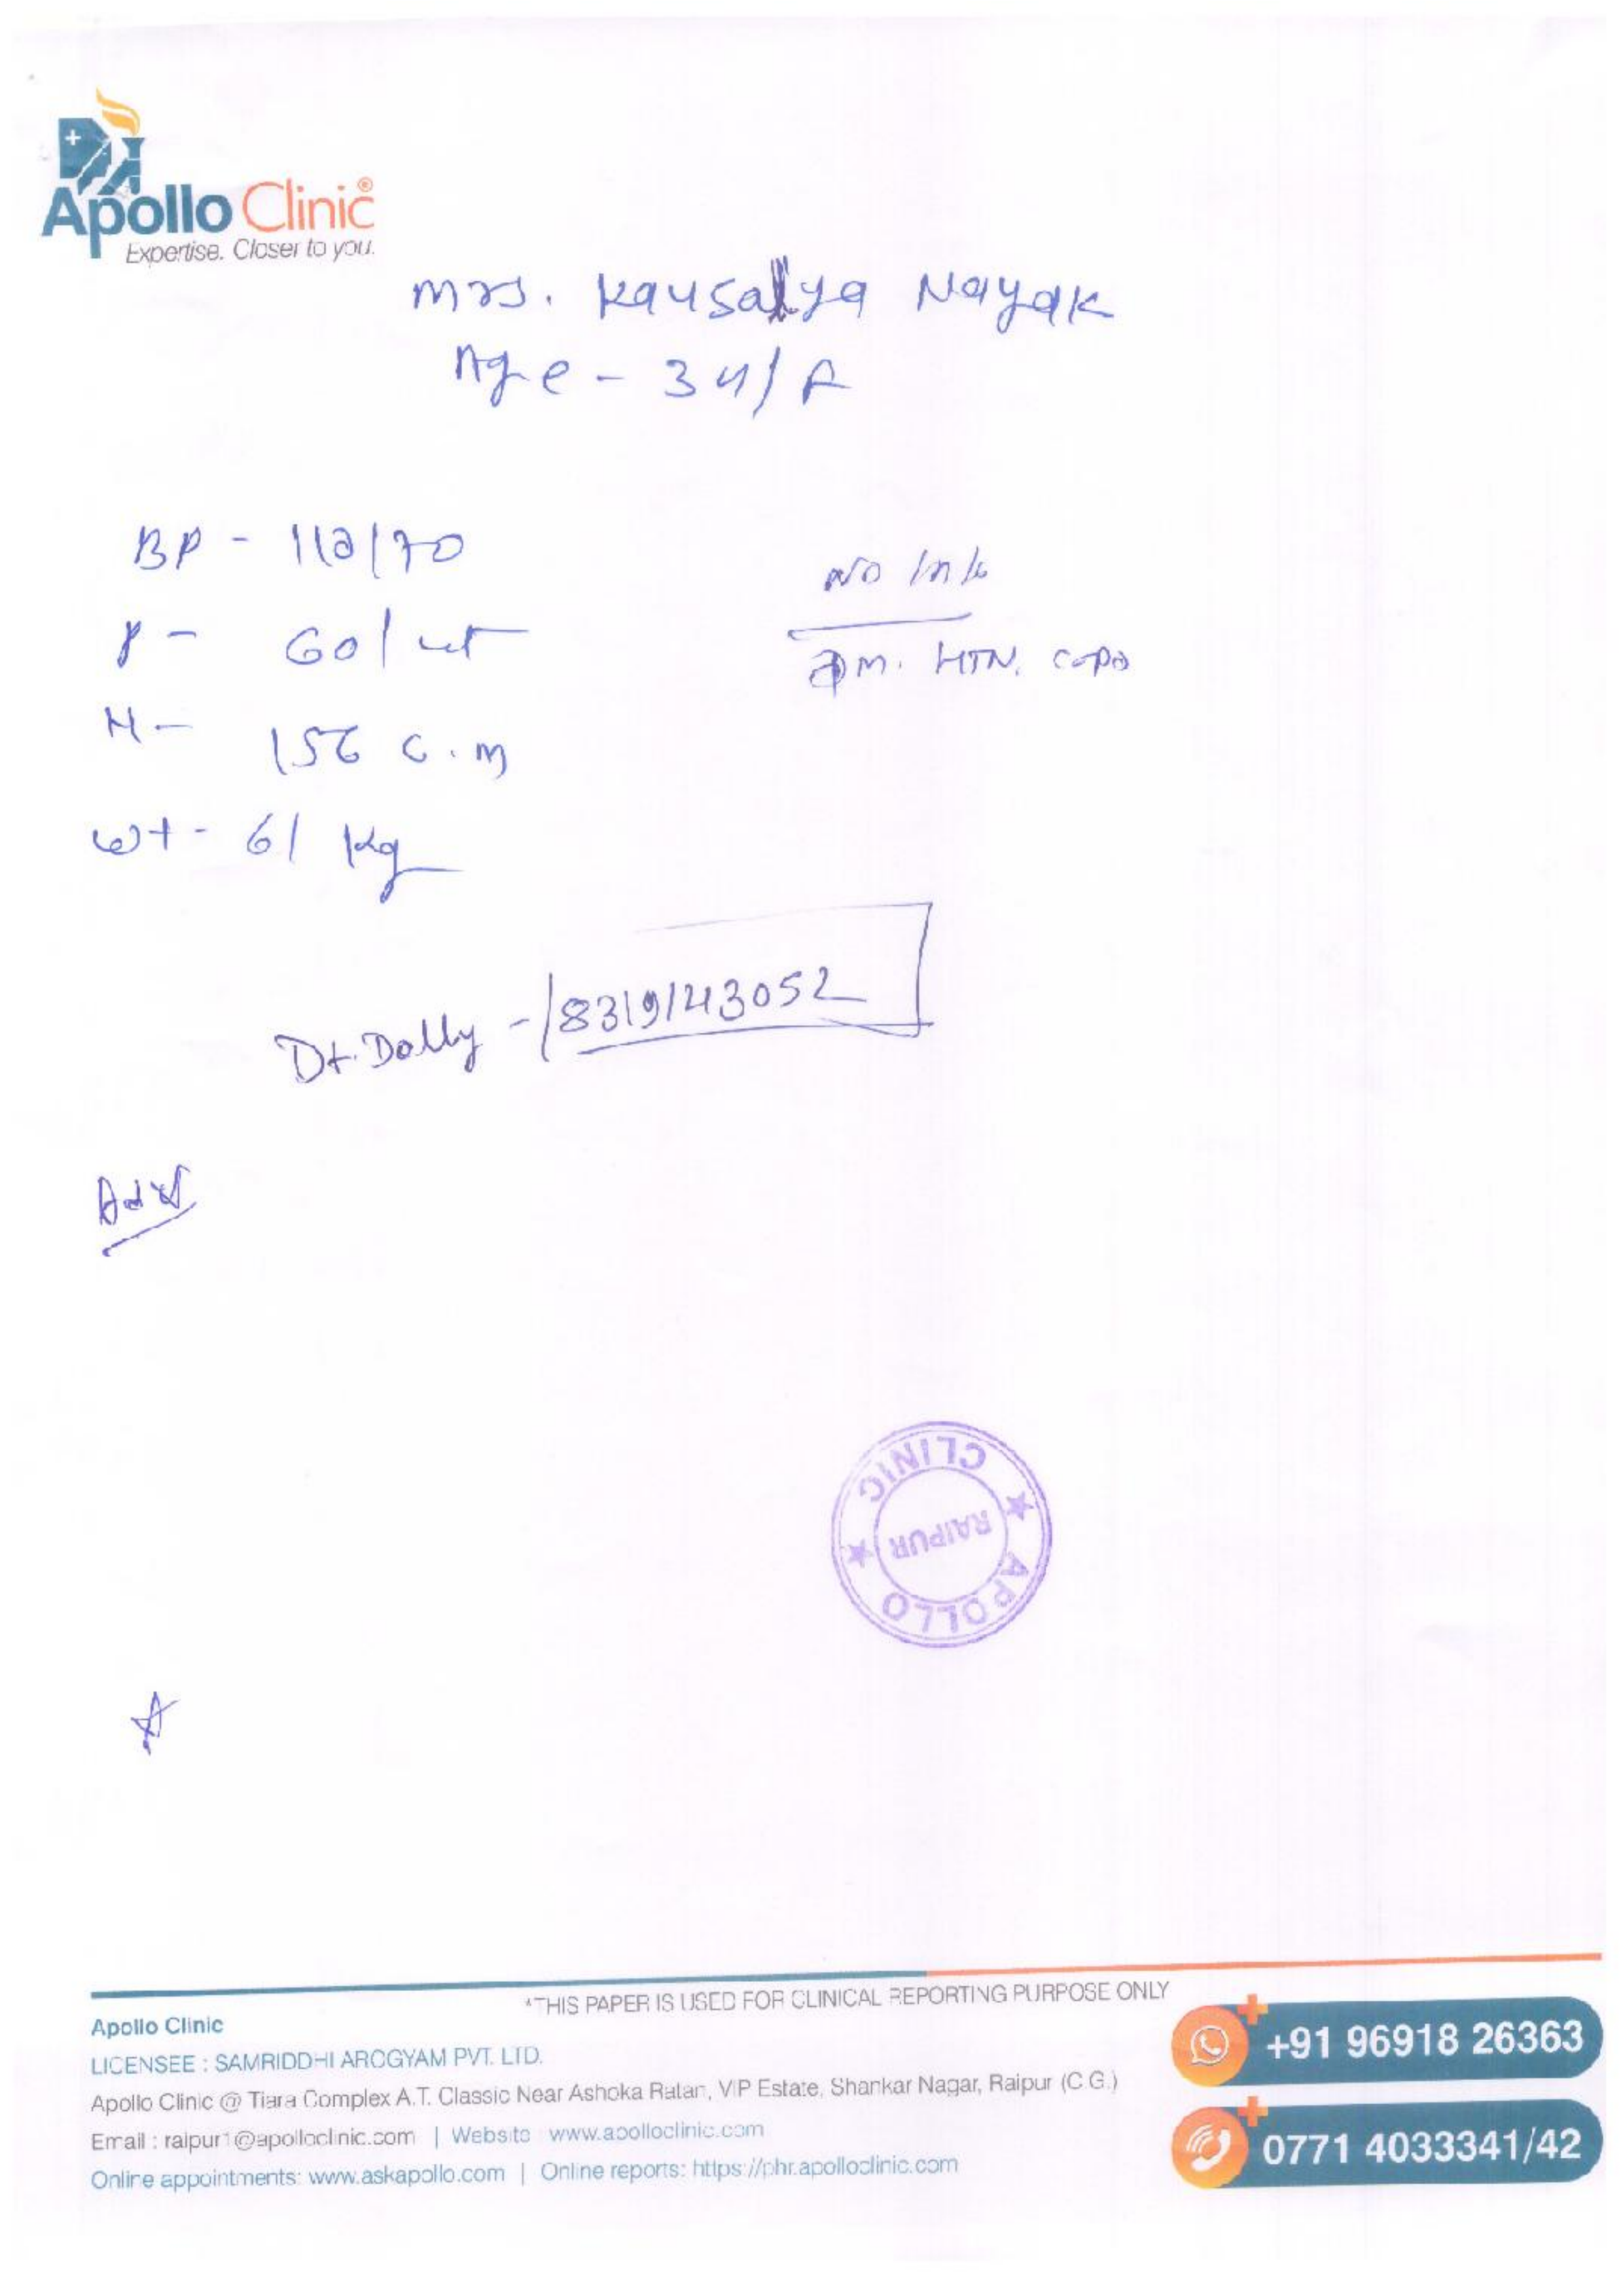 Apollo Clinic®
Expertise. Closer to you.
Mrs. Kausalya Nayak
Age - 34/F
BP - 110/70
P - 60/
H - 156 c.m
wt - 61 kg
No
DM. HTN. COPD
Dt. Dolly - 8319143052
Adv
CLINIC
RAIPUR
APOLLO
*THIS PAPER IS USED FOR CLINICAL REPORTING PURPOSE ONLY
Apollo Clinic
LICENSEE : SAMRIDDHI AROGYAM PVT. LTD.
Apollo Clinic @ Tiara Complex A.T. Classic Near Ashoka Ratan, VIP Estate, Shankar Nagar, Raipur (C.G.)
Email : raipur1@apolloclinic.com | Website : www.apolloclinic.com
Online appointments: www.askapollo.com | Online reports: https://phr.apolloclinic.com
+91 96918 26363
0771 4033341/42